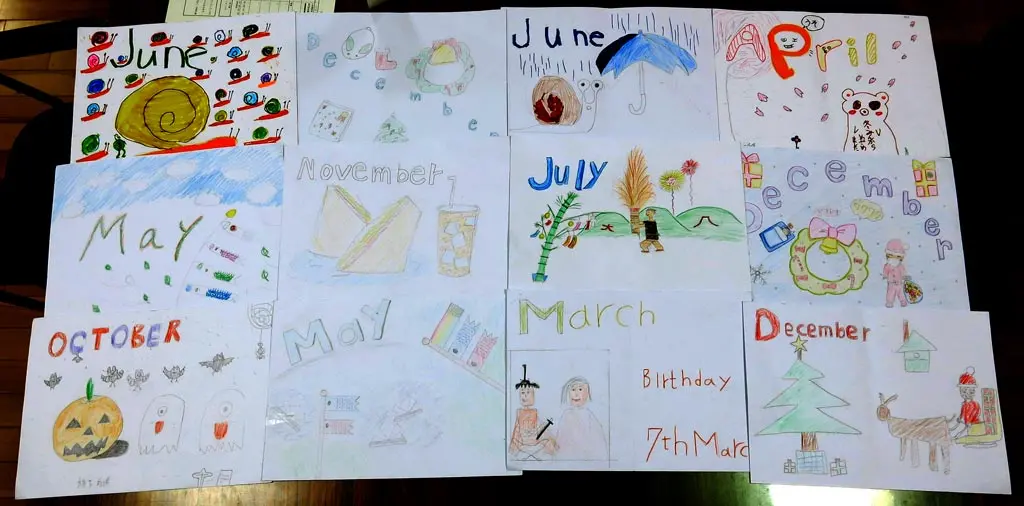 June
December
June
April
うそ
May
November
July
大
八
December
OCTOBER
May
March
Birthday
7th Marc
December